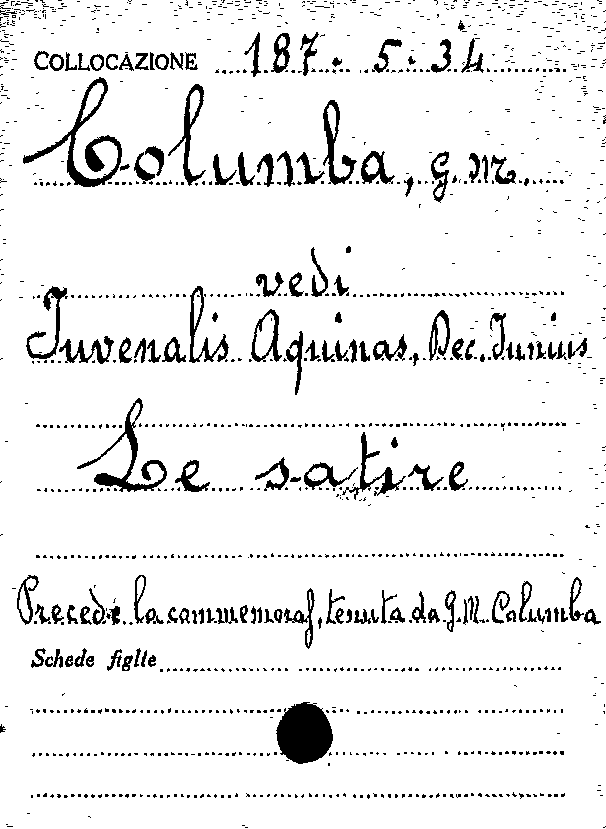 COLLOCAZIONE 187. 5. 34
Columba, G. M.
vedi
Juvenalis Aquinas, Dec. Junius
Le satire
Precede la commemoraz, tenuta da G. M. Columba
Schede figlie